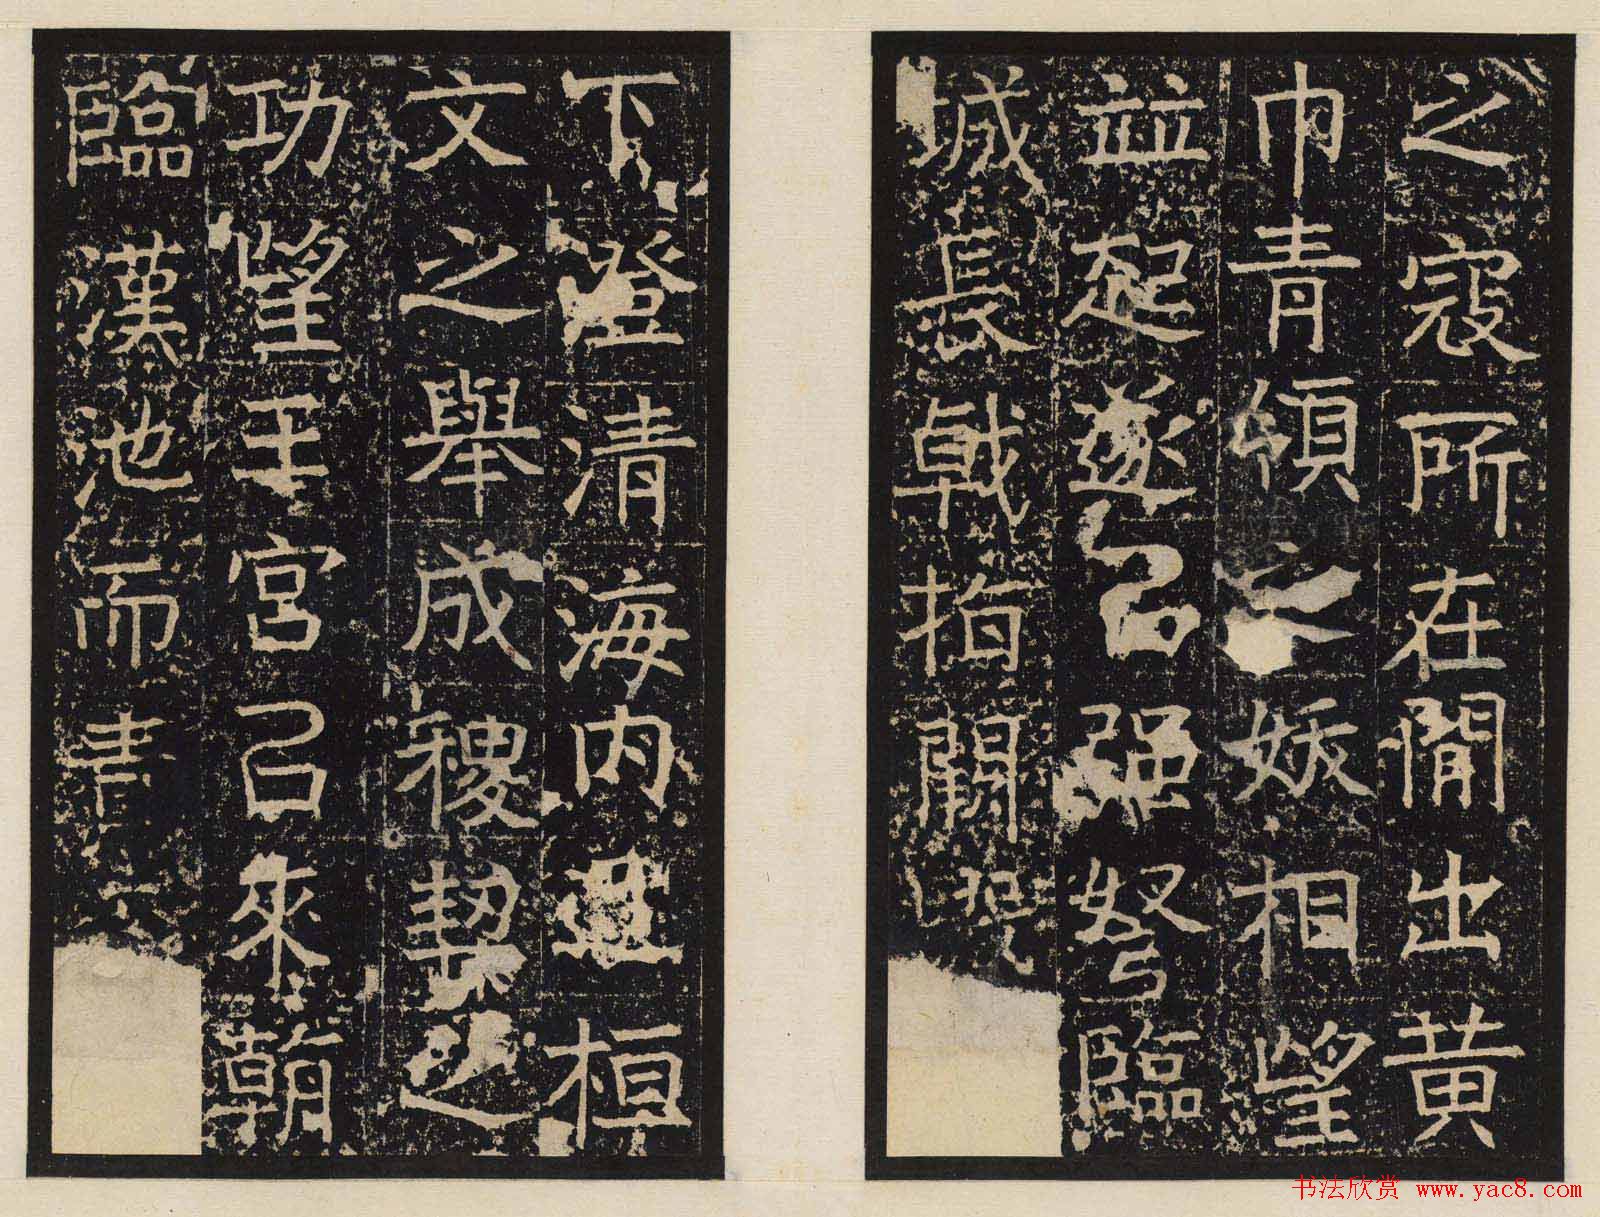 之寇所在間出黄
巾青領之妖相望
並起遂以强弩臨
城長戟指闕
下澄清海內且桓
文之舉成稷契之
功望王宮以來朝
臨漢池而
书法欣赏 www.yac8.com